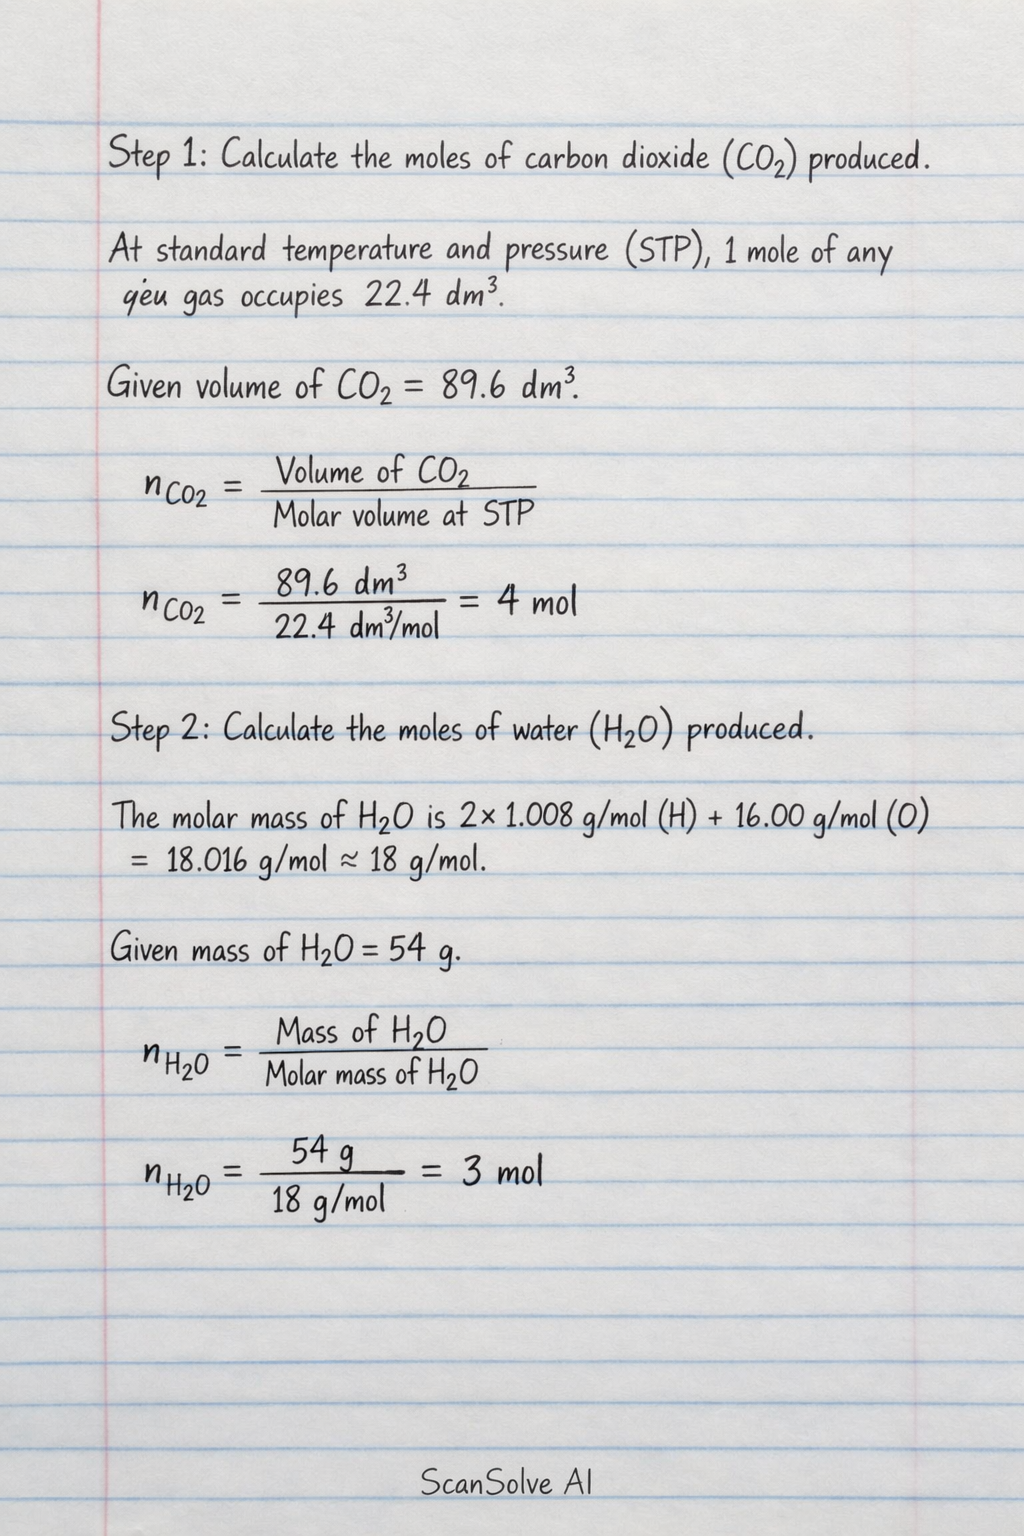 Step 1: Calculate the moles of carbon dioxide (CO₂) produced.
At standard temperature and pressure (STP), 1 mole of any
gas occupies 22.4 dm³.
Given volume of CO₂ = 89.6 dm³.
n_CO₂ = Volume of CO₂ / Molar volume at STP
n_CO₂ = 89.6 dm³ / 22.4 dm³/mol = 4 mol
Step 2: Calculate the moles of water (H₂O) produced.
The molar mass of H₂O is 2 × 1.008 g/mol (H) + 16.00 g/mol (O)
= 18.016 g/mol ≈ 18 g/mol.
Given mass of H₂O = 54 g.
n_H₂O = Mass of H₂O / Molar mass of H₂O
n_H₂O = 54 g / 18 g/mol = 3 mol
ScanSolve AI